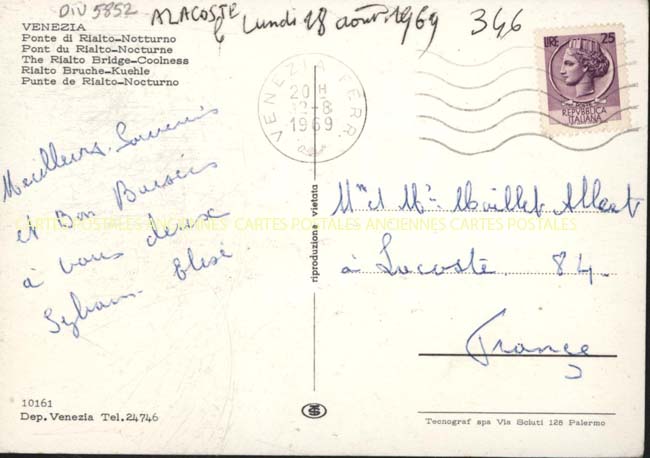 DIV 5852
A LACOSTE Lundi 18 août 1969 346
VENEZIA
Ponte di Rialto-Notturno
Pont du Rialto-Nocturne
The Rialto Bridge-Coolness
Rialto Bruche-Kuehle
Punte de Rialto-Nocturno
VENEZIA FERR.
20 H
12-8
1969
LIRE 25
POSTE
REPVBBLICA
ITALIANA
Meilleurs Souvenirs
et Bon Baisers
à vous deux
Sylvain Elisé
CARTES POSTALES ANCIENNES CARTES POSTALES ANCIENNES CARTES POSTALES
riproduzione vietata
Mme et Mr Maillet Albert
à Lacoste 84
France
10161
Dep. Venezia Tel.24746
Tecnograf spa Via Sciuti 128 Palermo